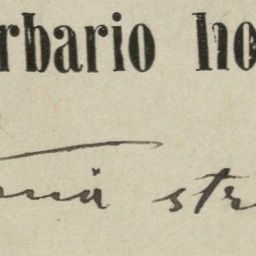 rbario ho
niä str